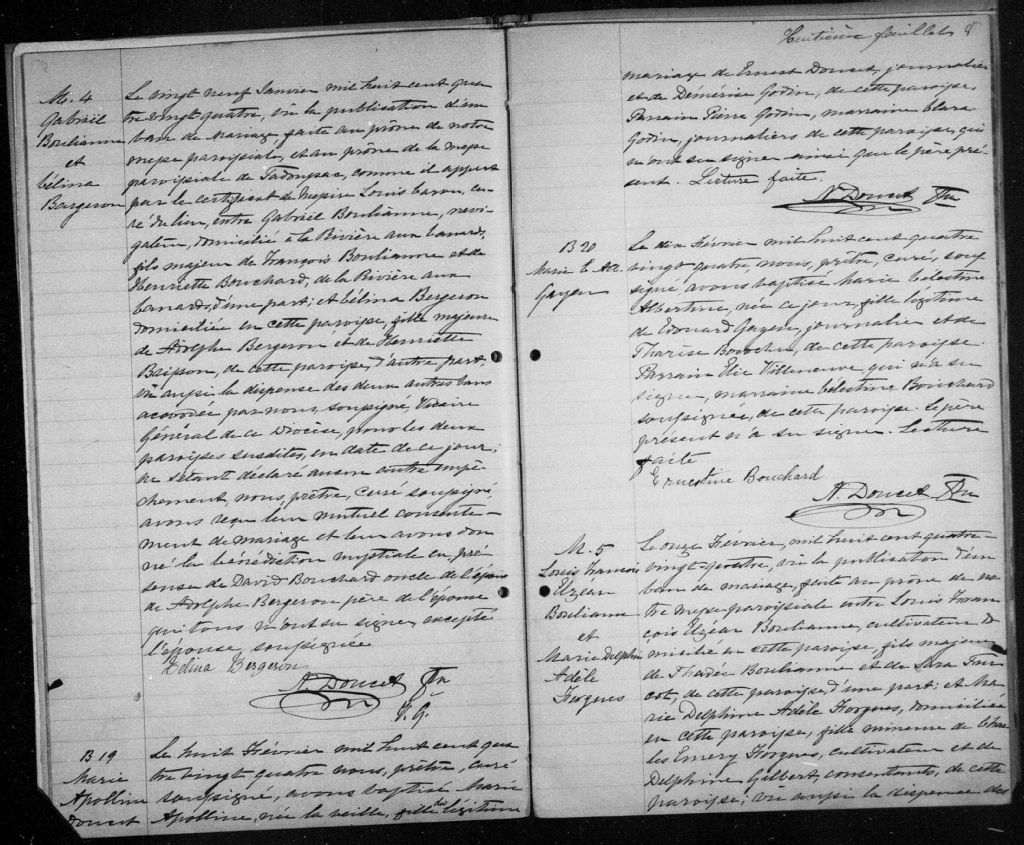 M. 4
Gabriel
Boulianne
et
Célina
Bergeron
Le vingt neuf Janvier mil huit cent qua
tre vingt quatre, vû la publication d'un
ban de Mariage, faite au prône de notre
messe paroissiale, et au prône de la messe
paroissiale de Tadoussac, comme il appert
par le certificat de Messire Louis Caron, cu
ré du lieu, entre Gabriel Boulianne, navi
gateur, domicilié à la Rivière aux Canards,
fils majeur de François Boulianne et de
Henriette Bouchard, de la Rivière aux
Canards, d'une part; et Célina Bergeron
domiciliée en cette paroisse, fille majeure
de Adolphe Bergeron et de Henriette
Brisson, de cette paroisse, d'autre part,
Vû aussi la dispense des deux autres bans
accordée par nous, soussigné, Vicaire
Général de ce Diocèse, pour les deux
paroisses susdites, en date de ce jour;
ne s'étant déclaré aucun autre empê
chement, nous, prêtre, curé soussigné,
avons reçu leur mutuel consente-
ment de mariage et leur avons don
né la bénédiction nuptiale en pré-
sence de David Bouchard oncle de l'époux
de Adolphe Bergeron père de l'épouse
qui tous n'ont su signer, excepté
l'épouse, soussignée
Célina Bergeron
A. Doucet Ptre
V. G.
B 19
Marie
Apolline
Doucet
Le huit Février mil huit cent qua
tre vingt quatre nous, prêtre, curé
soussigné, avons baptisé Marie
Apolline, née la veille, fille légitime
Huitième feuillet 8
mariage de Ernest Doucet, journalier
et de Démérise Godin, de cette paroisse,
Parrain Pierre Godin, marraine Clara
Godin, journaliers de cette paroisse, qui
n'ont su signer ainsi que le père pré-
sent. Lecture faite.
A. Doucet Ptre
B 20
Marie C. Al.
Gagné
Le dix Février mil huit cent quatre
vingt quatre, nous, prêtre, curé, sous
signé avons baptisé Marie Célestine
Albertine, née ce jour, fille légitime
de Edouard Gagné, journalier et de
Tharise, de cette paroisse.
Parrain Elie Villeneuve, qui n'a su
signer, marraine Célestine Bouchard
soussignée, de cette paroisse. Le père
présent n'a su signer. Lecture
faite
Ernestine Bouchard
A. Doucet Ptre
M. 5
Louis François
Elzéar
Boulianne
et
Marie Delphine
Adèle
Forgues
Le onze Février, mil huit cent quatre-
vingt-quatre, vû la publication d'un
ban de mariage, faite au prône de no
tre messe paroissiale entre Louis Fran
çois Elzéar Boulianne, cultivateur do
micilié en cette paroisse, fils majeur
de Thadée Boulianne et de Sara Tur
cot, de cette paroisse, d'une part; et Ma
rie Delphine Adèle Forgues, domiciliée
en cette paroisse, fille mineure de Char
les Emery Forgues, cultivateur et de
Delphine Gilbert, consentants, de cette
paroisse; vû aussi la dispense des